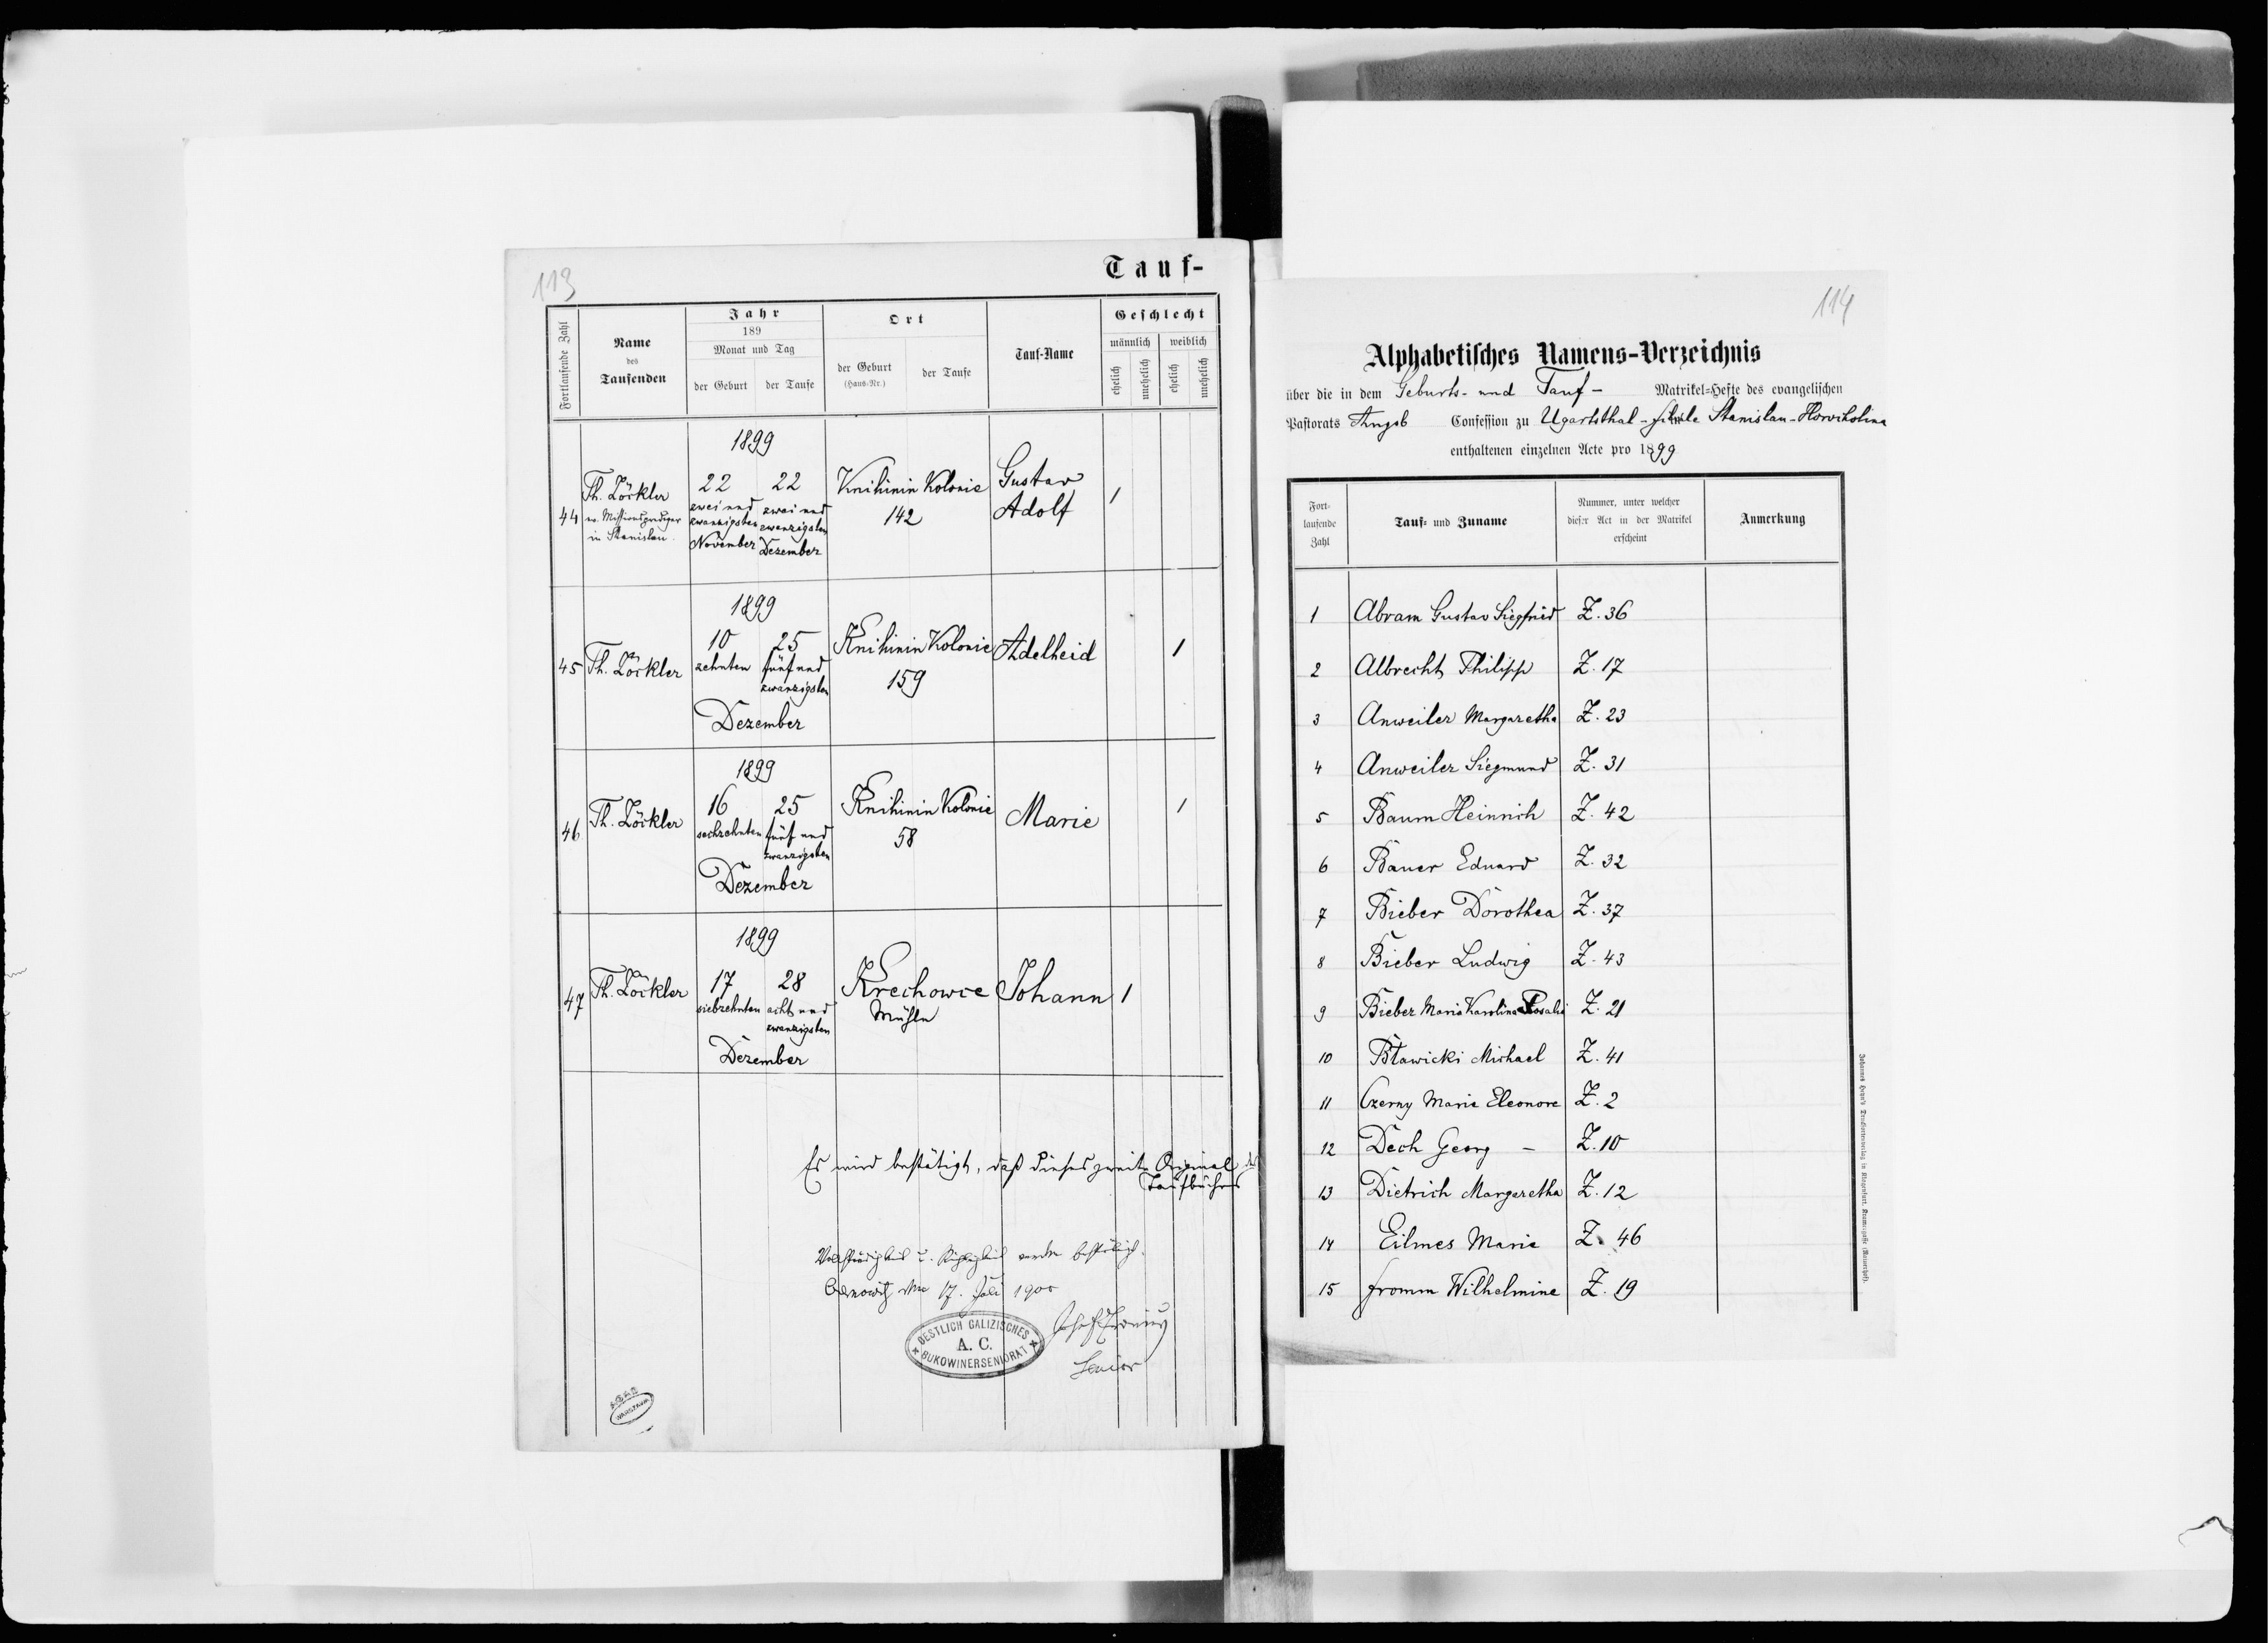 113
Tauf-
Fortlaufende Zahl
Name
des
Taufenden
Jahr
189
Monat und Tag
der Geburt
der Taufe
Ort
der Geburt
(Haus-Nr.)
der Taufe
Tauf-Name
Geschlecht
männlich
weiblich
ehelich
unehelich
ehelich
unehelich
1899
44
Th. Zöckler
ev. Missionsprediger
in Stanislau.
22
zwei und
zwanzigsten
November
22
zwei und
zwanzigsten
Dezember
Knihinin Kolonie
142
Gustav
Adolf
1
1899
45
Th. Zöckler
10
zehnten
25
fünf und
zwanzigsten
Dezember
Knihinin Kolonie
159
Adelheid
1
1899
46
Th. Zöckler
16
sechzehnten
25
fünf und
zwanzigsten
Dezember
Knihinin Kolonie
58
Marie
1
1899
47
Th. Zöckler
17
siebzehnten
28
acht und
zwanzigsten
Dezember
Krechowce
Mühle
Johann
1
Es wird bestätigt, daß dieses zweite Original des
Taufbuches
Vollständigkeit u. Richtigkeit werden bestätigt.
den 17. Juli 1900
Senior
OESTLICH GALIZISCHES
A. C.
BUKOWINERSENIORAT
AGAD
WARSZAWA
114
Alphabetisches Namens-Verzeichnis
über die in dem Geburts- und Tauf- Matrikel-Hefte des evangelischen
Pastorats Augsb Confession zu Ugartsthal - Filiale Stanislau-
enthaltenen einzelnen Acte pro 1899
Fort-
laufende
Zahl
Tauf- und Zuname
Nummer, unter welcher
dieser Act in der Matrikel
erscheint
Anmerkung
1 Abram Gustav Siegfried Z. 36
2 Albrecht Philipp Z. 17
3 Anweiler Margaretha Z. 23
4 Anweiler Siegmund Z. 31
5 Baum Heinrich Z. 42
6 Bauer Eduard Z. 32
7 Bieber Dorothea Z. 37
8 Bieber Ludwig Z. 43
9 Bieber Maria Karolina Rosalie Z. 21
10 Bławicki Michael Z. 41
11 Czerny Marie Eleonore Z. 2
12 Dech Georg - Z. 10
13 Dietrich Margaretha Z. 12
14 Eilmes Marie Z. 46
15 Fromm Wilhelmine Z. 19